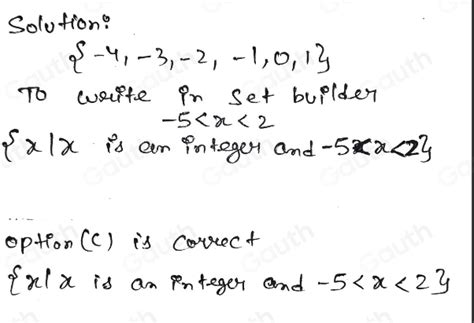 Solution:
{-4, -3, -2, -1, 0, 1}
To write in set builder
-5 < x < 2
{x | x is an integer and -5 < x < 2}
option (C) is correct
{x | x is an integer and -5 < x < 2}